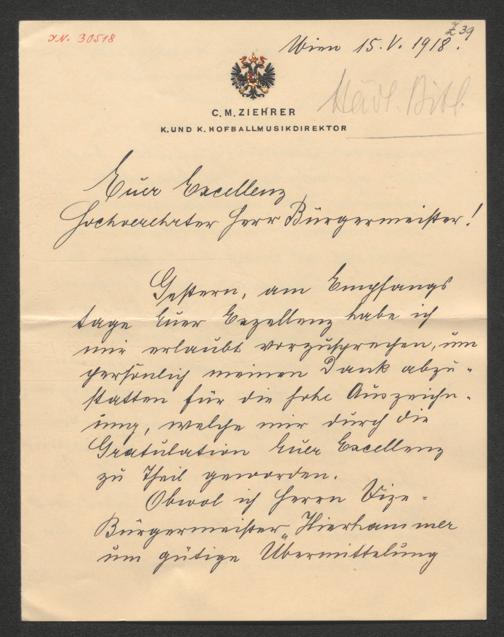 J.N. 30518
Z 39
Wien 15.V.1918.
Städt. Bibl.
C. M. ZIEHRER
K. UND K. HOFBALLMUSIKDIREKTOR
Euer Excellenz
Hochverehrter Herr Bürgermeister!
Gestern, am Empfangs
tage Euer Exzellenz habe ich
mir erlaubt vorzusprechen, um
persönlich meinen Dank abzu-
statten für die hohe Auszeichn-
ung, welche mir durch die
Gratulation Euer Excellenz
zu Theil geworden.
Obwol ich Herrn Vize-
Bürgermeister „Hierhammer
um gütige Übermittelung